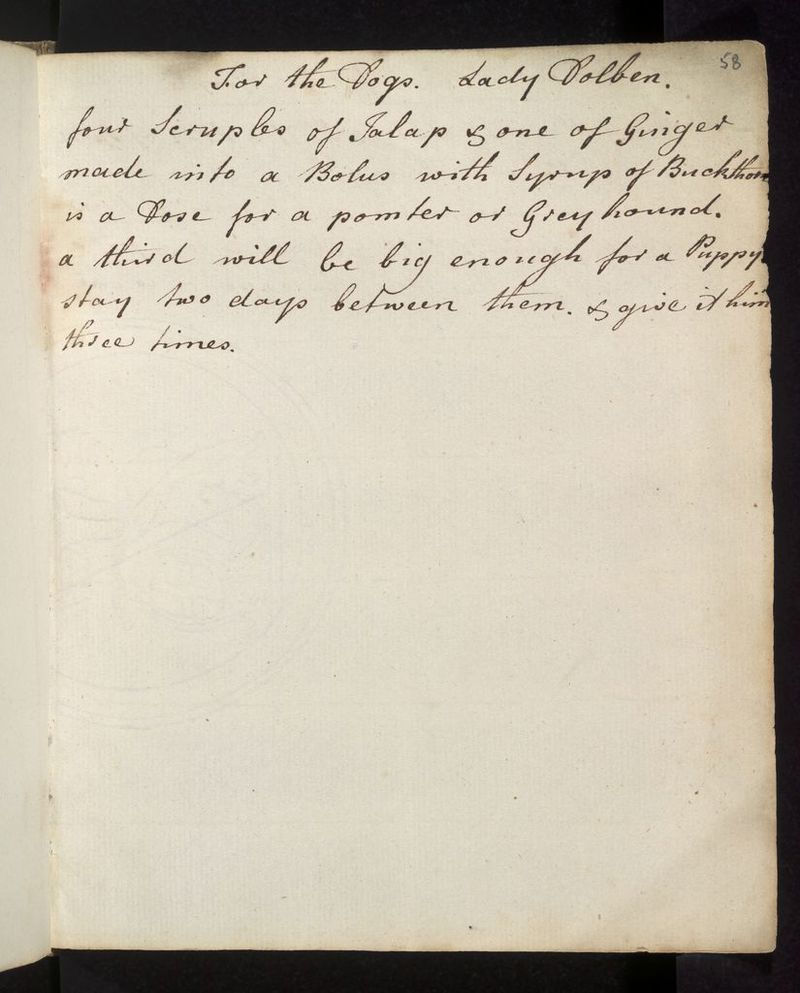 58
For the Dogs. Lady Dolben.
four Scruples of Jalap & one of Ginger
made into a Bolus with Syrup of Buckthorn
is a Dose for a pointer or Greyhound.
a third will be big enough for a Puppy
stay two days between them. & give it him
three times.